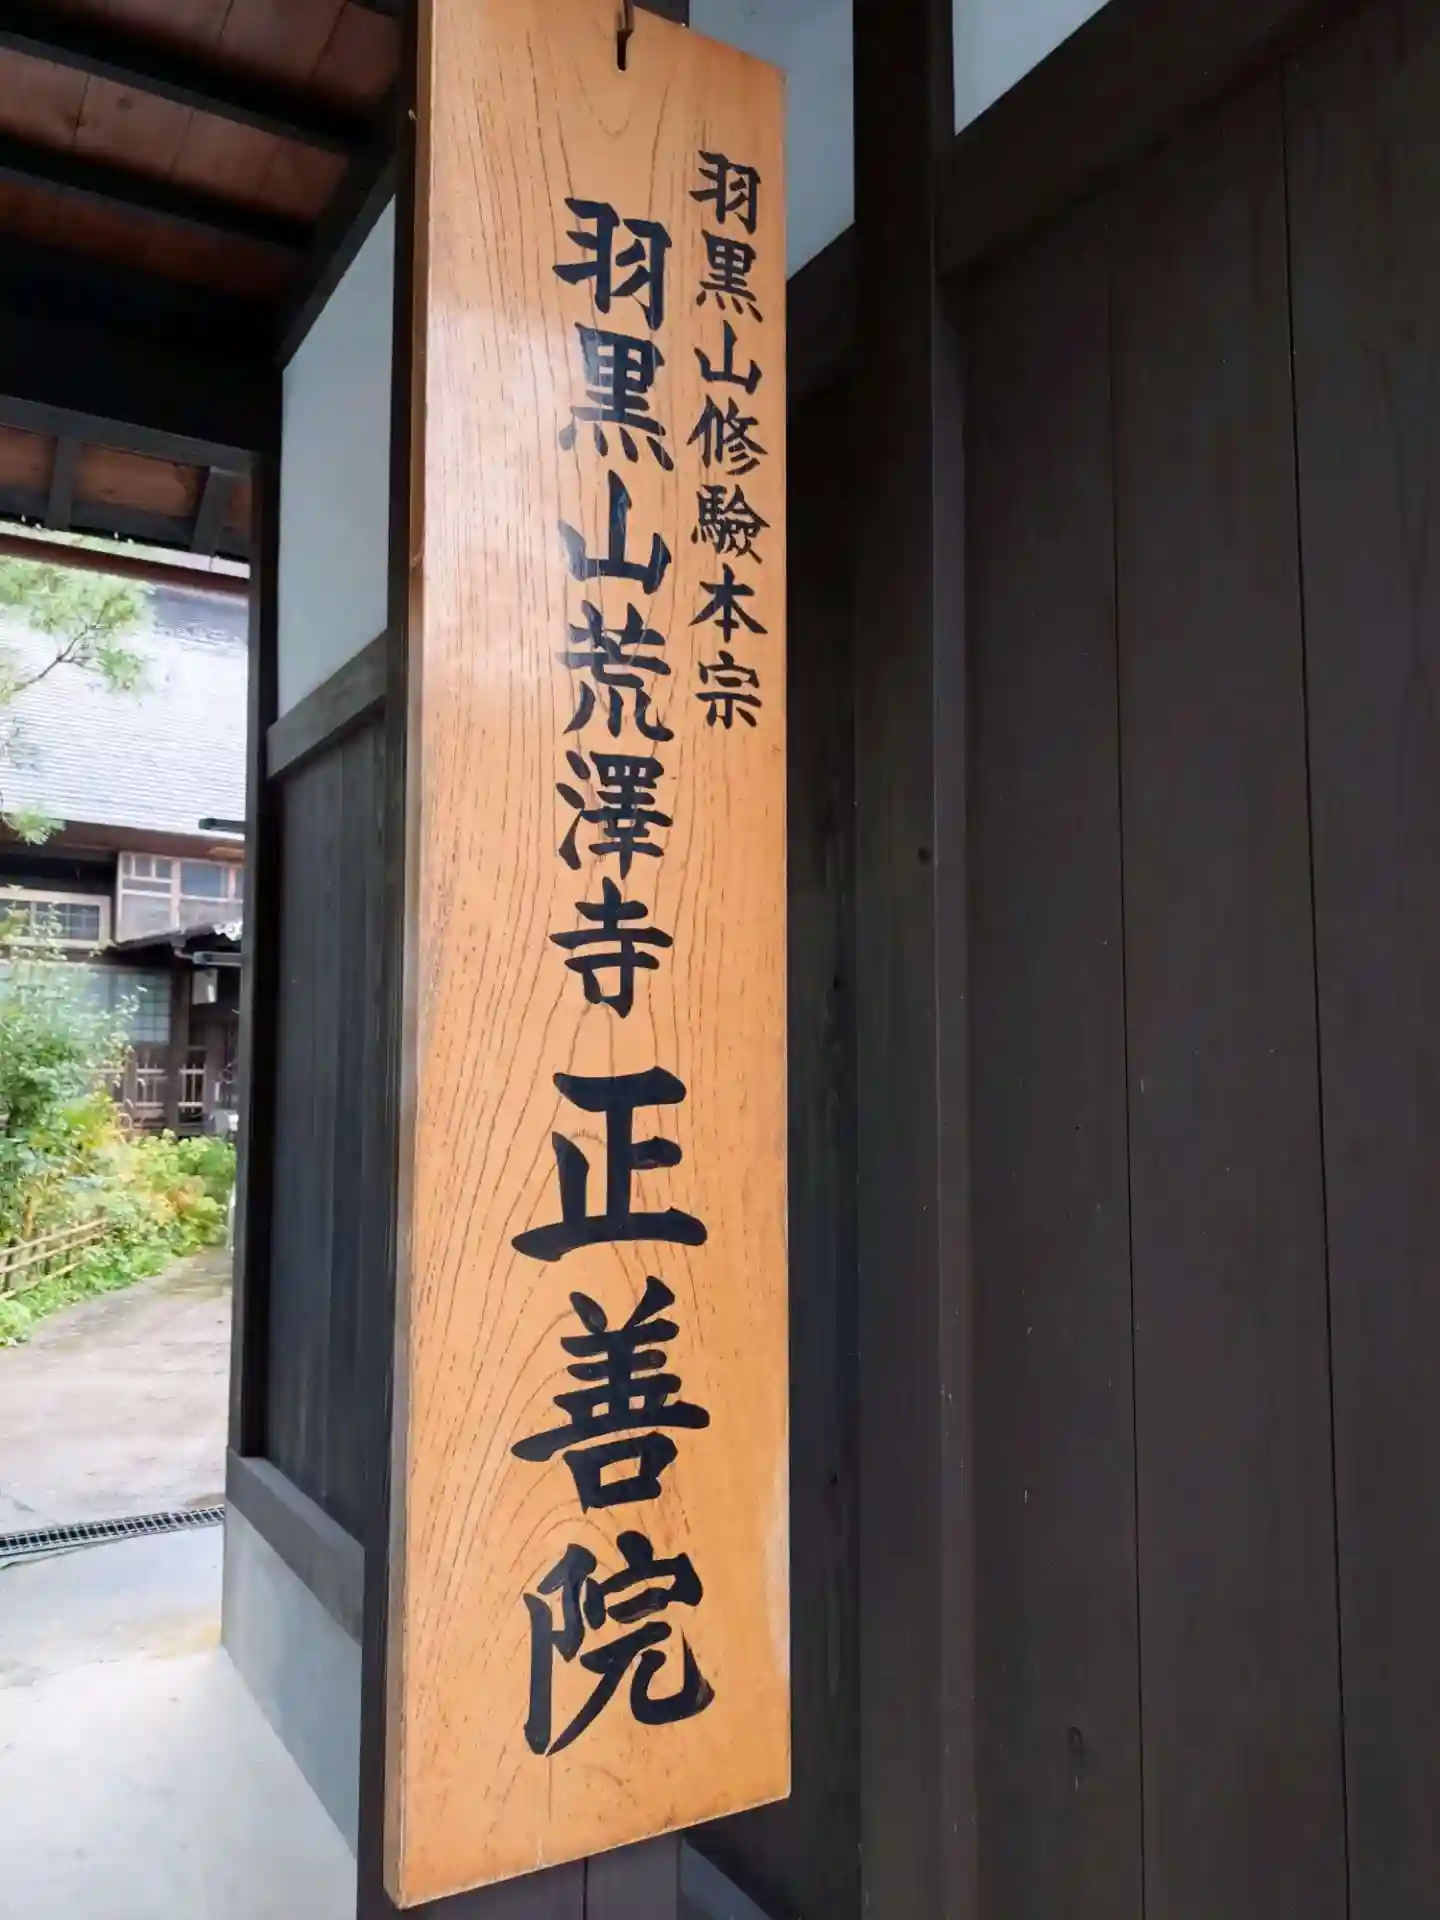 羽黒山修験本宗
羽黒山荒澤寺正善院